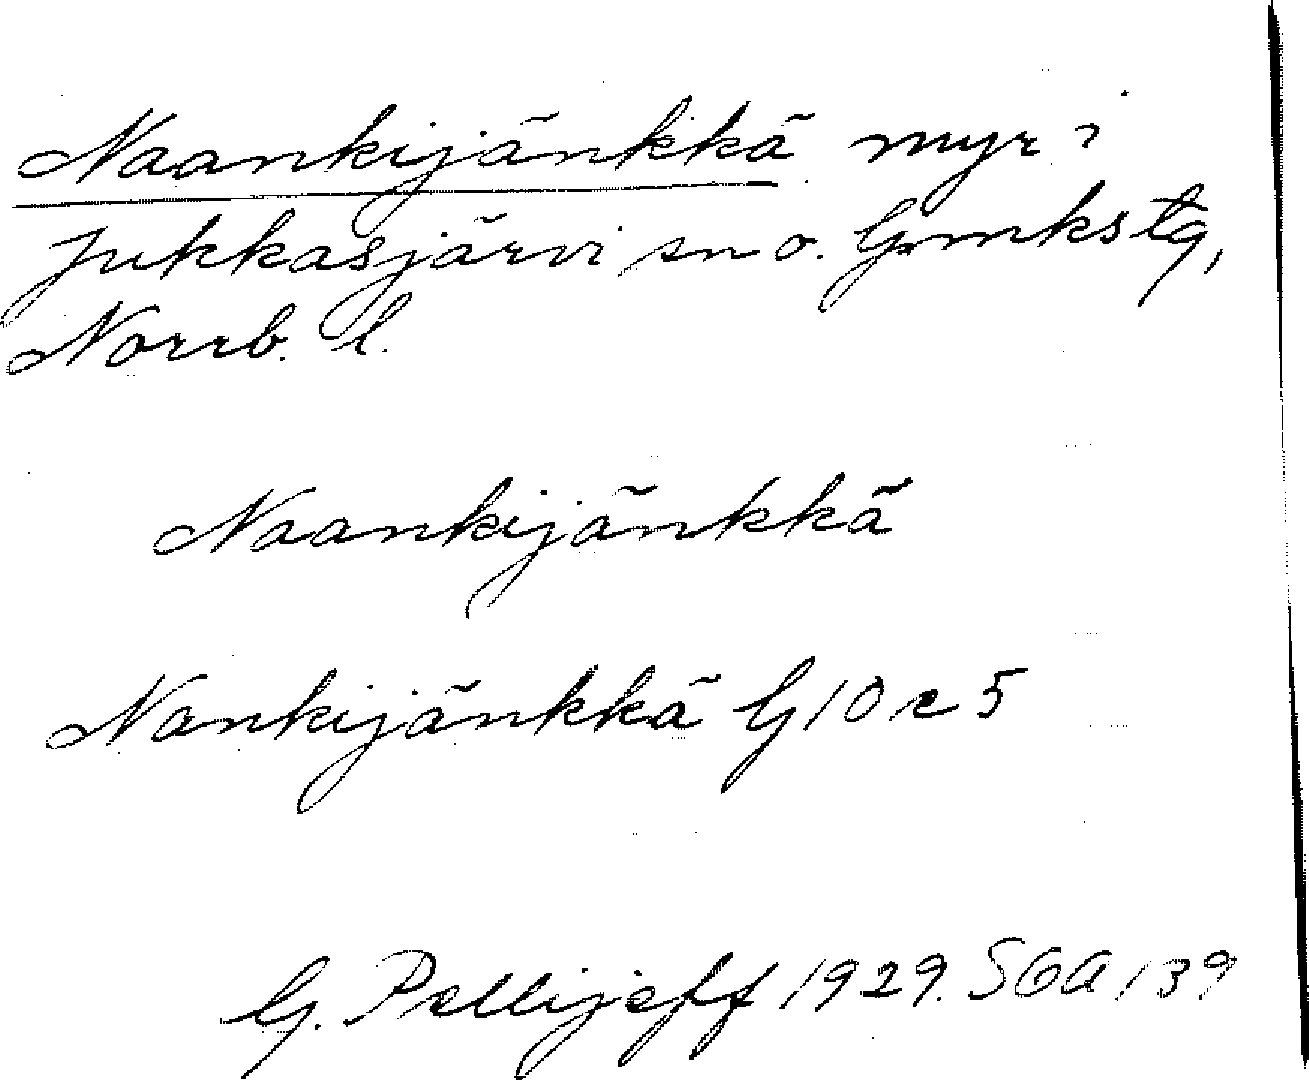 Naankijänkkä myr i
Jukkasjärvi sn o. Gmkstg,
Norrb. l.
Naankijänkkä
Nankijänkkä G 10 c 5
G. Pellijeff 1929. SOA 139